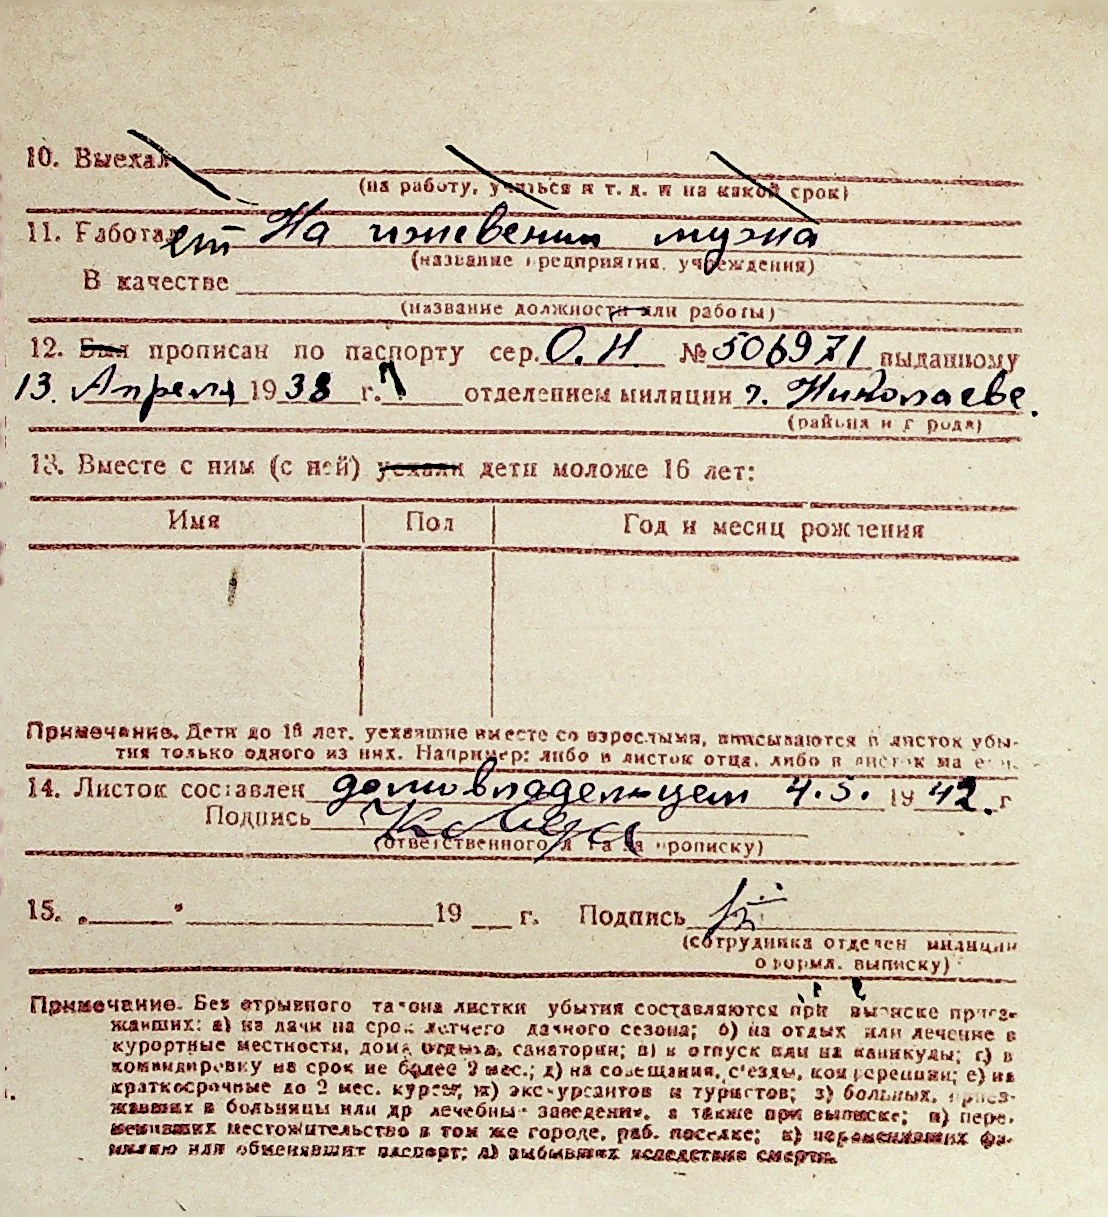 10. Выехал
(на работу, учиться и т. д. и на какой срок)
11. Работает На ижевении мужа
(название предприятия, учреждения)
В качестве
(название должности или работы)
12. Был прописан по паспорту сер. О.Н № 506971 выданному
13. Апреля 1938 г. 1 отделением милиции г. Николаеве.
(района и города)
13. Вместе с ним (с ней) уехали дети моложе 16 лет:
Имя Пол Год и месяц рождения
Примечание. Дети до 16 лет, уехавшие вместе со взрослыми, вписываются в листок убы-
тия только одного из них. Например: либо в листок отца, либо в листок ма
14. Листок составлен домовладельцем 4.5. 1942. г
Подпись
(ответственного за прописку)
15. „ " 19 г. Подпись
(сотрудника отделен милиции
оформл. выписку)
Примечание. Без отрывного талона листки убытия составляются при выписке приез-
жавших: а) из дачи на срок летнего дачного сезона; б) на отдых или лечение в
курортные местности, дома отдыха, санатории; в) в отпуск или на каникулы; г) в
командировку на срок не более 2 мес.; д) на совещания, с'езды, конференции; е) на
краткосрочные до 2 мес. курсы; ж) экскурсантов и туристов; з) больных, приез-
жавших в больницы или др лечебны заведения, а также при выписке; и) пере
менивших местожительство в том же городе, раб. поселке; к) переменивших фа-
милию или обменявшит паспорт; л) выбывших вследствие смерти.